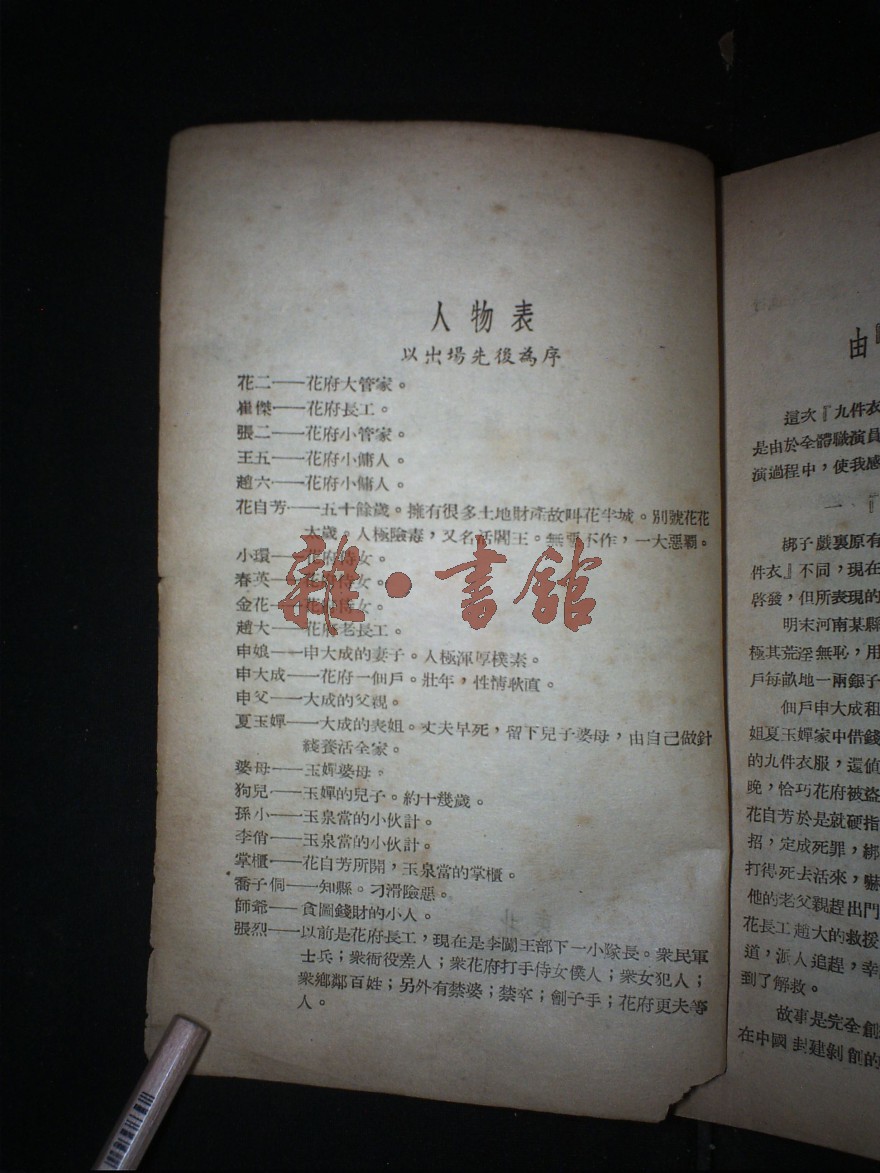 人物表
以出場先後為序
花二——花府大管家。
崔傑——花府長工。
張二——花府小管家。
王五——花府小傭人。
趙六——花府小傭人。
花自芳——五十餘歲。擁有很多土地財產故叫花半城。別號花花
太歲。人極險毒，又名活閻王。無惡不作，一大惡霸。
小環——花府侍女。
春英——花府侍女。
金花——花府侍女。
趙大——花府老長工。
申娘——申大成的妻子。人極渾厚樸素。
申大成——花府一佃戶。壯年，性情耿直。
申父——大成的父親。
夏玉嬋——大成的表姐。丈夫早死，留下兒子婆母，由自己做針
綫養活全家。
婆母——玉嬋婆母。
狗兒——玉嬋的兒子。約十幾歲。
孫小——玉泉當的小伙計。
李俏——玉泉當的小伙計。
掌櫃——花自芳所開，玉泉當的掌櫃。
喬子侗——知縣。刁滑險惡。
師爺——貪圖錢財的小人。
張烈——以前是花府長工，現在是李闖王部下一小隊長。衆民軍
士兵；衆衙役差人；衆花府打手侍女僕人；衆女犯人；
衆鄉鄰百姓；另外有禁婆；禁卒；劊子手；花府更夫等
人。
雜·書館
由
這次『九件衣
是由於全體職演員
演過程中，使我感
一、『
梆子戲裏原有
件衣』不同，現在
啓發，但所表現的
明末河南某縣
極其荒淫無恥，用
戶每畝地一兩銀子
佃戶申大成和
姐夏玉嬋家中借錢
的九件衣服，還偵
晚，恰巧花府被盜
花自芳於是就硬指
招，定成死罪，綁
打得死去活來，嚇
他的老父親趕出門
花長工趙大的救援
道，派人追趕，幸
到了解救。
故事是完全創
在中國封建剝削的